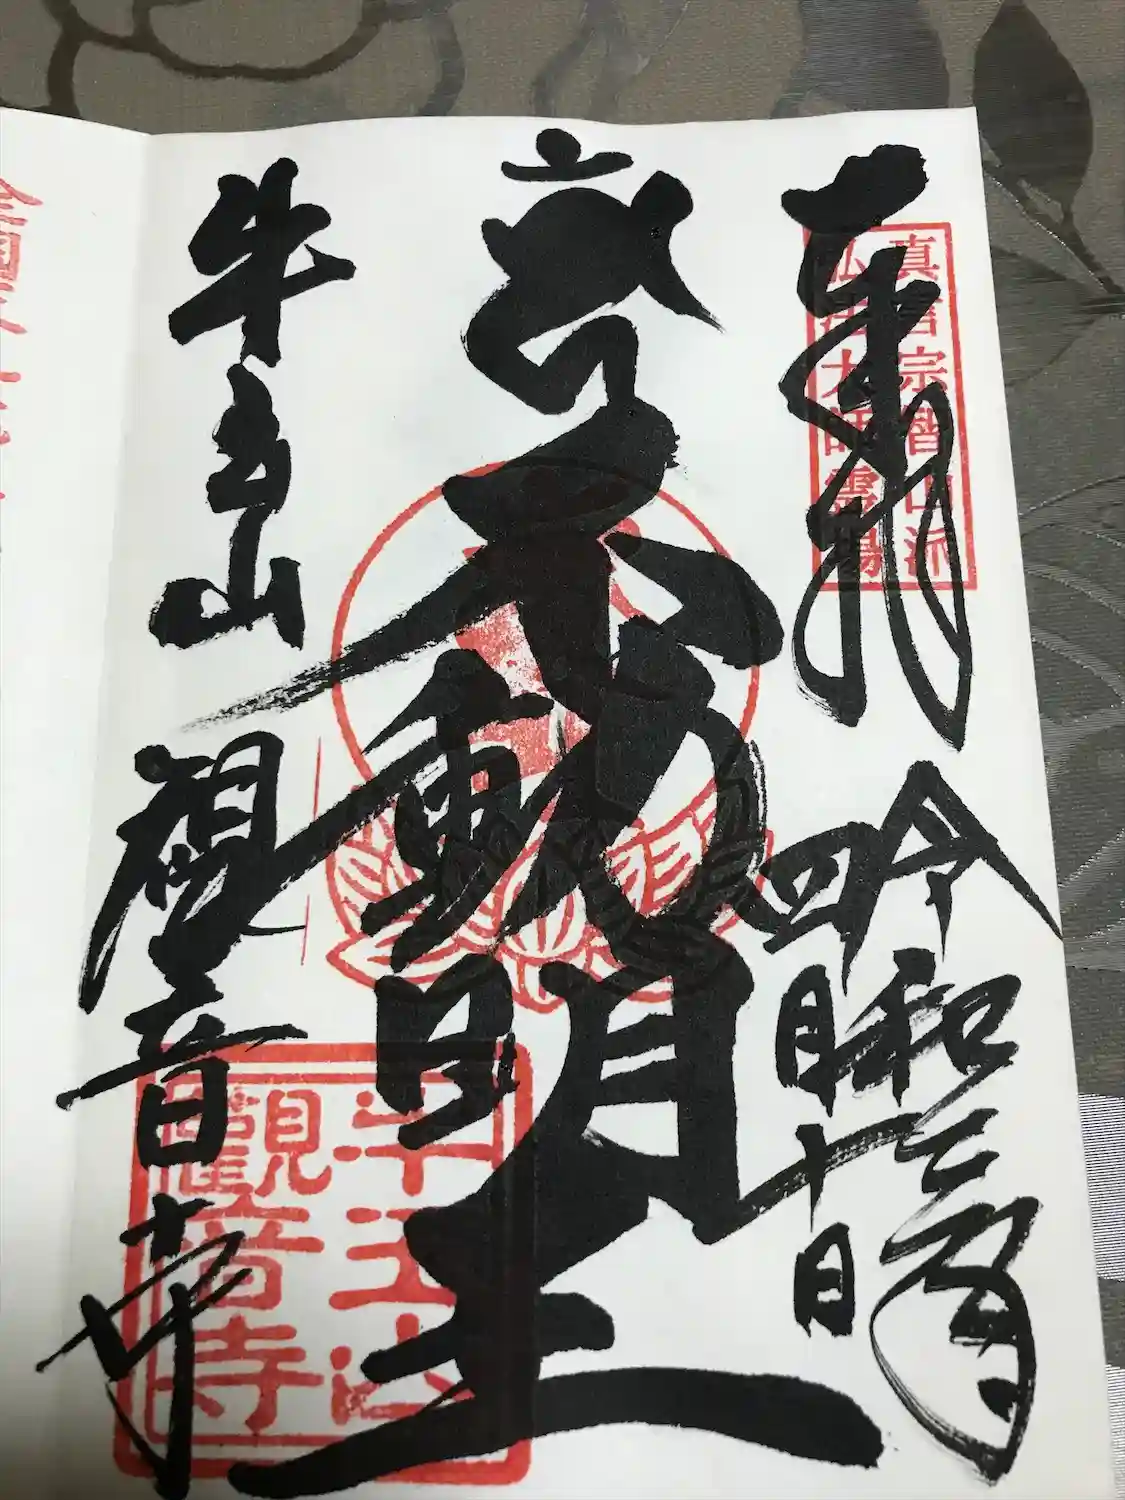 奉拝
真言宗智山派
弘法大師霊場
令和二
四月十日
不動明王
牛玉山
観音寺
牛玉山
觀音寺